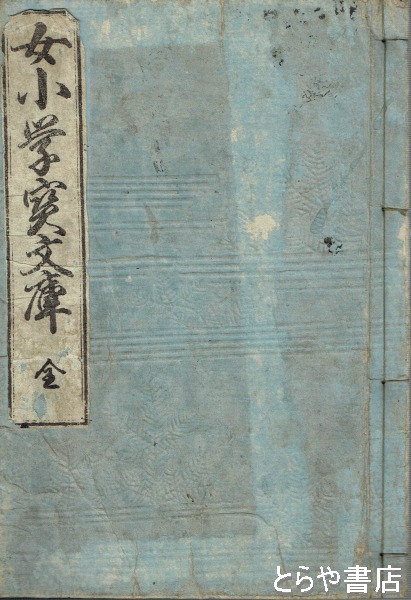 女小学宝文庫
全
とらや書店